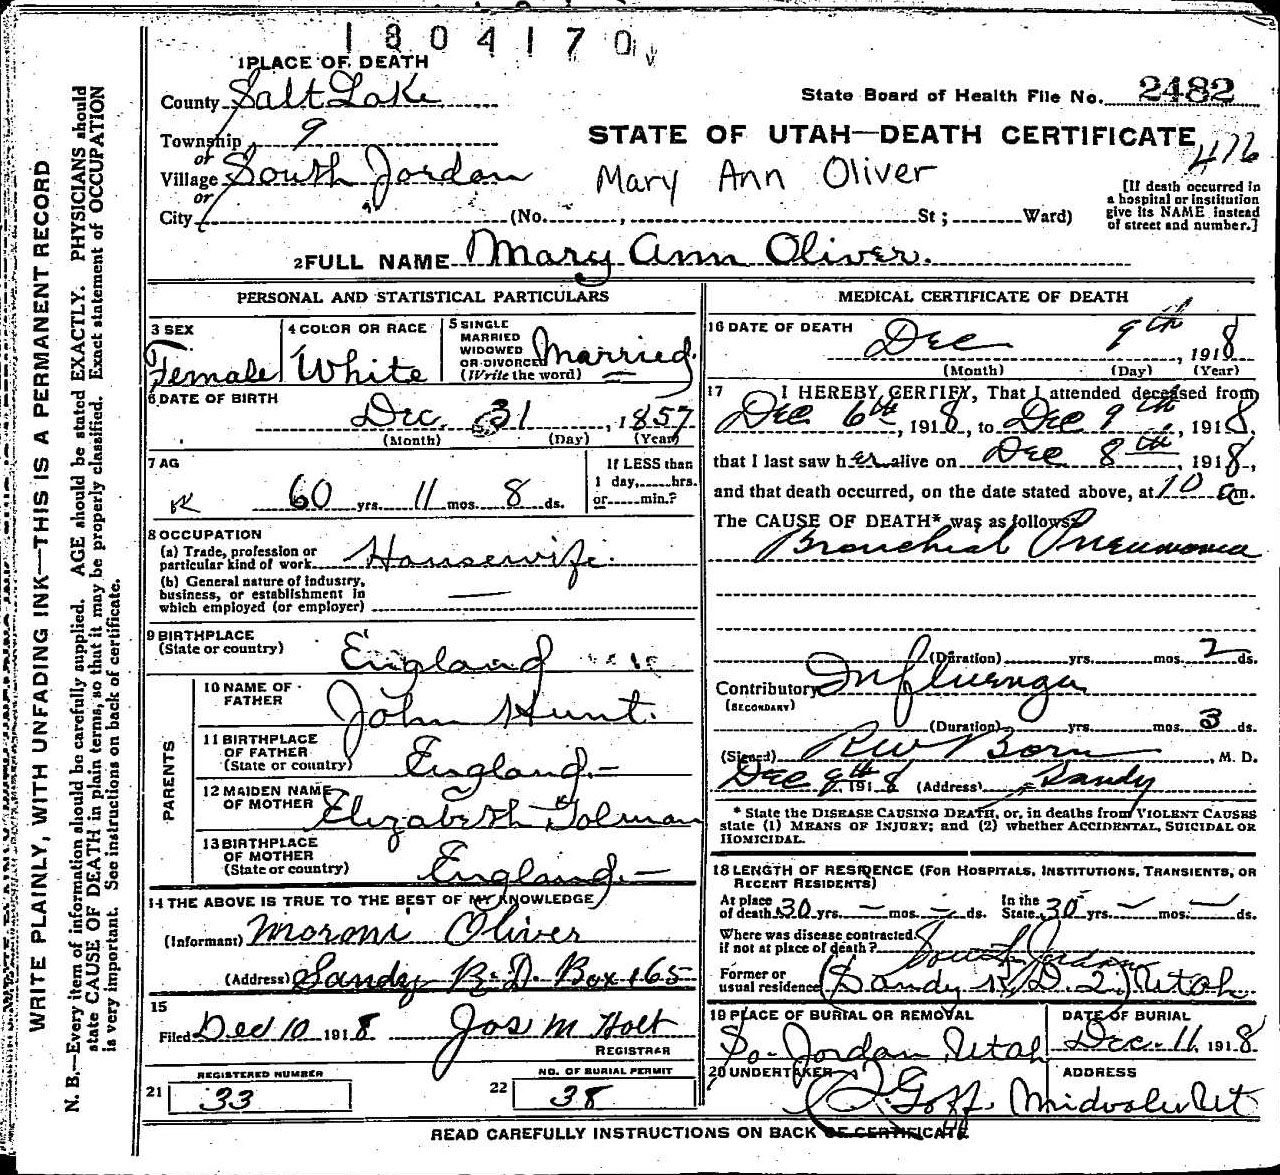 1804170
1 PLACE OF DEATH
County Salt Lake
State Board of Health File No. 2482
Township 9
or
STATE OF UTAH—DEATH CERTIFICATE
Village South Jordan
Mary Ann Oliver
or
City (No. , St; Ward)
[If death occurred in
a hospital or institution
give its NAME instead
of street and number.]
2 FULL NAME Mary Ann Oliver.
WRITE PLAINLY, WITH UNFADING INK—THIS IS A PERMANENT RECORD
N. B.—Every item of information should be carefully supplied. AGE should be stated EXACTLY. PHYSICIANS should
state CAUSE OF DEATH in plain terms, so that it may be properly classified. Exact statement of OCCUPATION
is very important. See instructions on back of certificate.
PERSONAL AND STATISTICAL PARTICULARS
3 SEX
Female
4 COLOR OR RACE
White
5 SINGLE
MARRIED
WIDOWED
OR DIVORCED
(Write the word)
Married
6 DATE OF BIRTH
Dec. 31, 1857
(Month) (Day) (Year)
7 AG
60 yrs. 11 mos. 8 ds.
If LESS than
1 day, hrs.
or min.?
8 OCCUPATION
(a) Trade, profession or
particular kind of work Housewife.
(b) General nature of industry,
business, or establishment in
which employed (or employer)
9 BIRTHPLACE
(State or country) England
PARENTS
10 NAME OF
FATHER John Hunt.
11 BIRTHPLACE
OF FATHER
(State or country) England.—
12 MAIDEN NAME
OF MOTHER Elizabeth Tolman
13 BIRTHPLACE
OF MOTHER
(State or country) England.—
14 THE ABOVE IS TRUE TO THE BEST OF MY KNOWLEDGE
(Informant) Moroni Oliver
(Address) Sandy R. D. Box 165
15
Filed Dec 10 1918 Jos M Holt
REGISTRAR
REGISTERED NUMBER
21 33
NO. OF BURIAL PERMIT
22 38
MEDICAL CERTIFICATE OF DEATH
16 DATE OF DEATH
Dec 9th, 1918
(Month) (Day) (Year)
17 I HEREBY CERTIFY, That I attended deceased from
Dec 6th, 1918, to Dec 9th, 1918,
that I last saw her alive on Dec 8th, 1918,
and that death occurred, on the date stated above, at 10 am.
The CAUSE OF DEATH* was as follows:
Bronchial Pneumonia
(Duration) yrs. mos. 2 ds.
Contributory Influenza
(SECONDARY)
(Duration) yrs. mos. 3 ds.
(Signed) R W Born, M. D.
Dec 9th 1918 (Address) Sandy
* State the DISEASE CAUSING DEATH, or, in deaths from VIOLENT CAUSES
state (1) MEANS OF INJURY; and (2) whether ACCIDENTAL, SUICIDAL OR
HOMICIDAL.
18 LENGTH OF RESIDENCE (FOR HOSPITALS, INSTITUTIONS, TRANSIENTS, OR
RECENT RESIDENTS)
At place
of death 30 yrs. — mos. — ds.
In the
State 30 yrs. — mos. — ds.
Where was disease contracted,
if not at place of death? South Jordan
Former or
usual residence (Sandy R.D. 2.) Utah
19 PLACE OF BURIAL OR REMOVAL
So. Jordan Utah
DATE OF BURIAL
Dec. 11, 1918
20 UNDERTAKER
Goff.
ADDRESS
Midvale Ut
READ CAREFULLY INSTRUCTIONS ON BACK OF CERTIFICATE